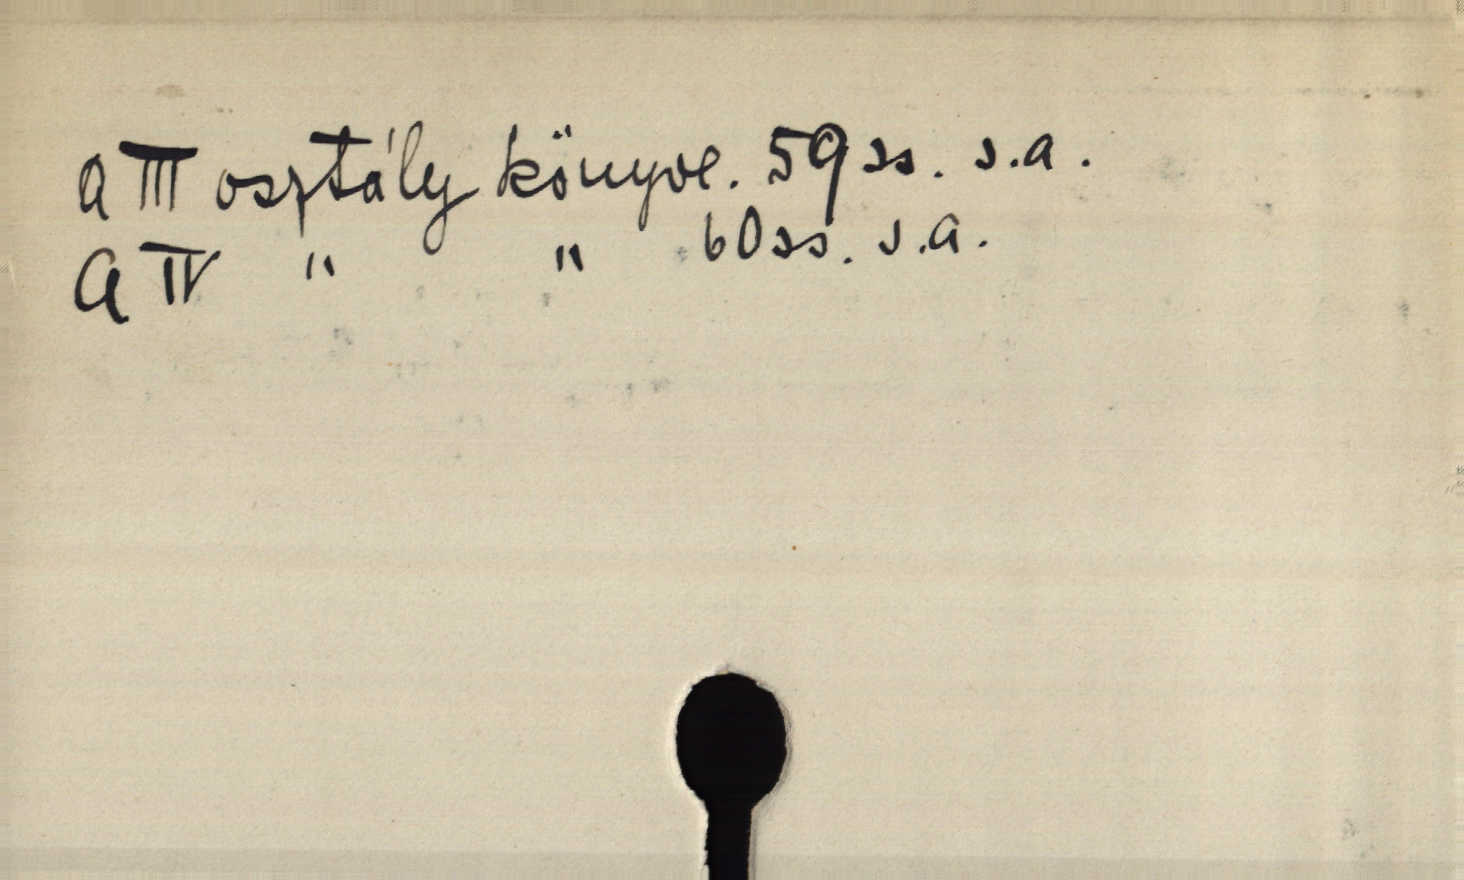 a III osztály könyve. 59 ss. s.a.
a IV " " 60 ss. s.a.